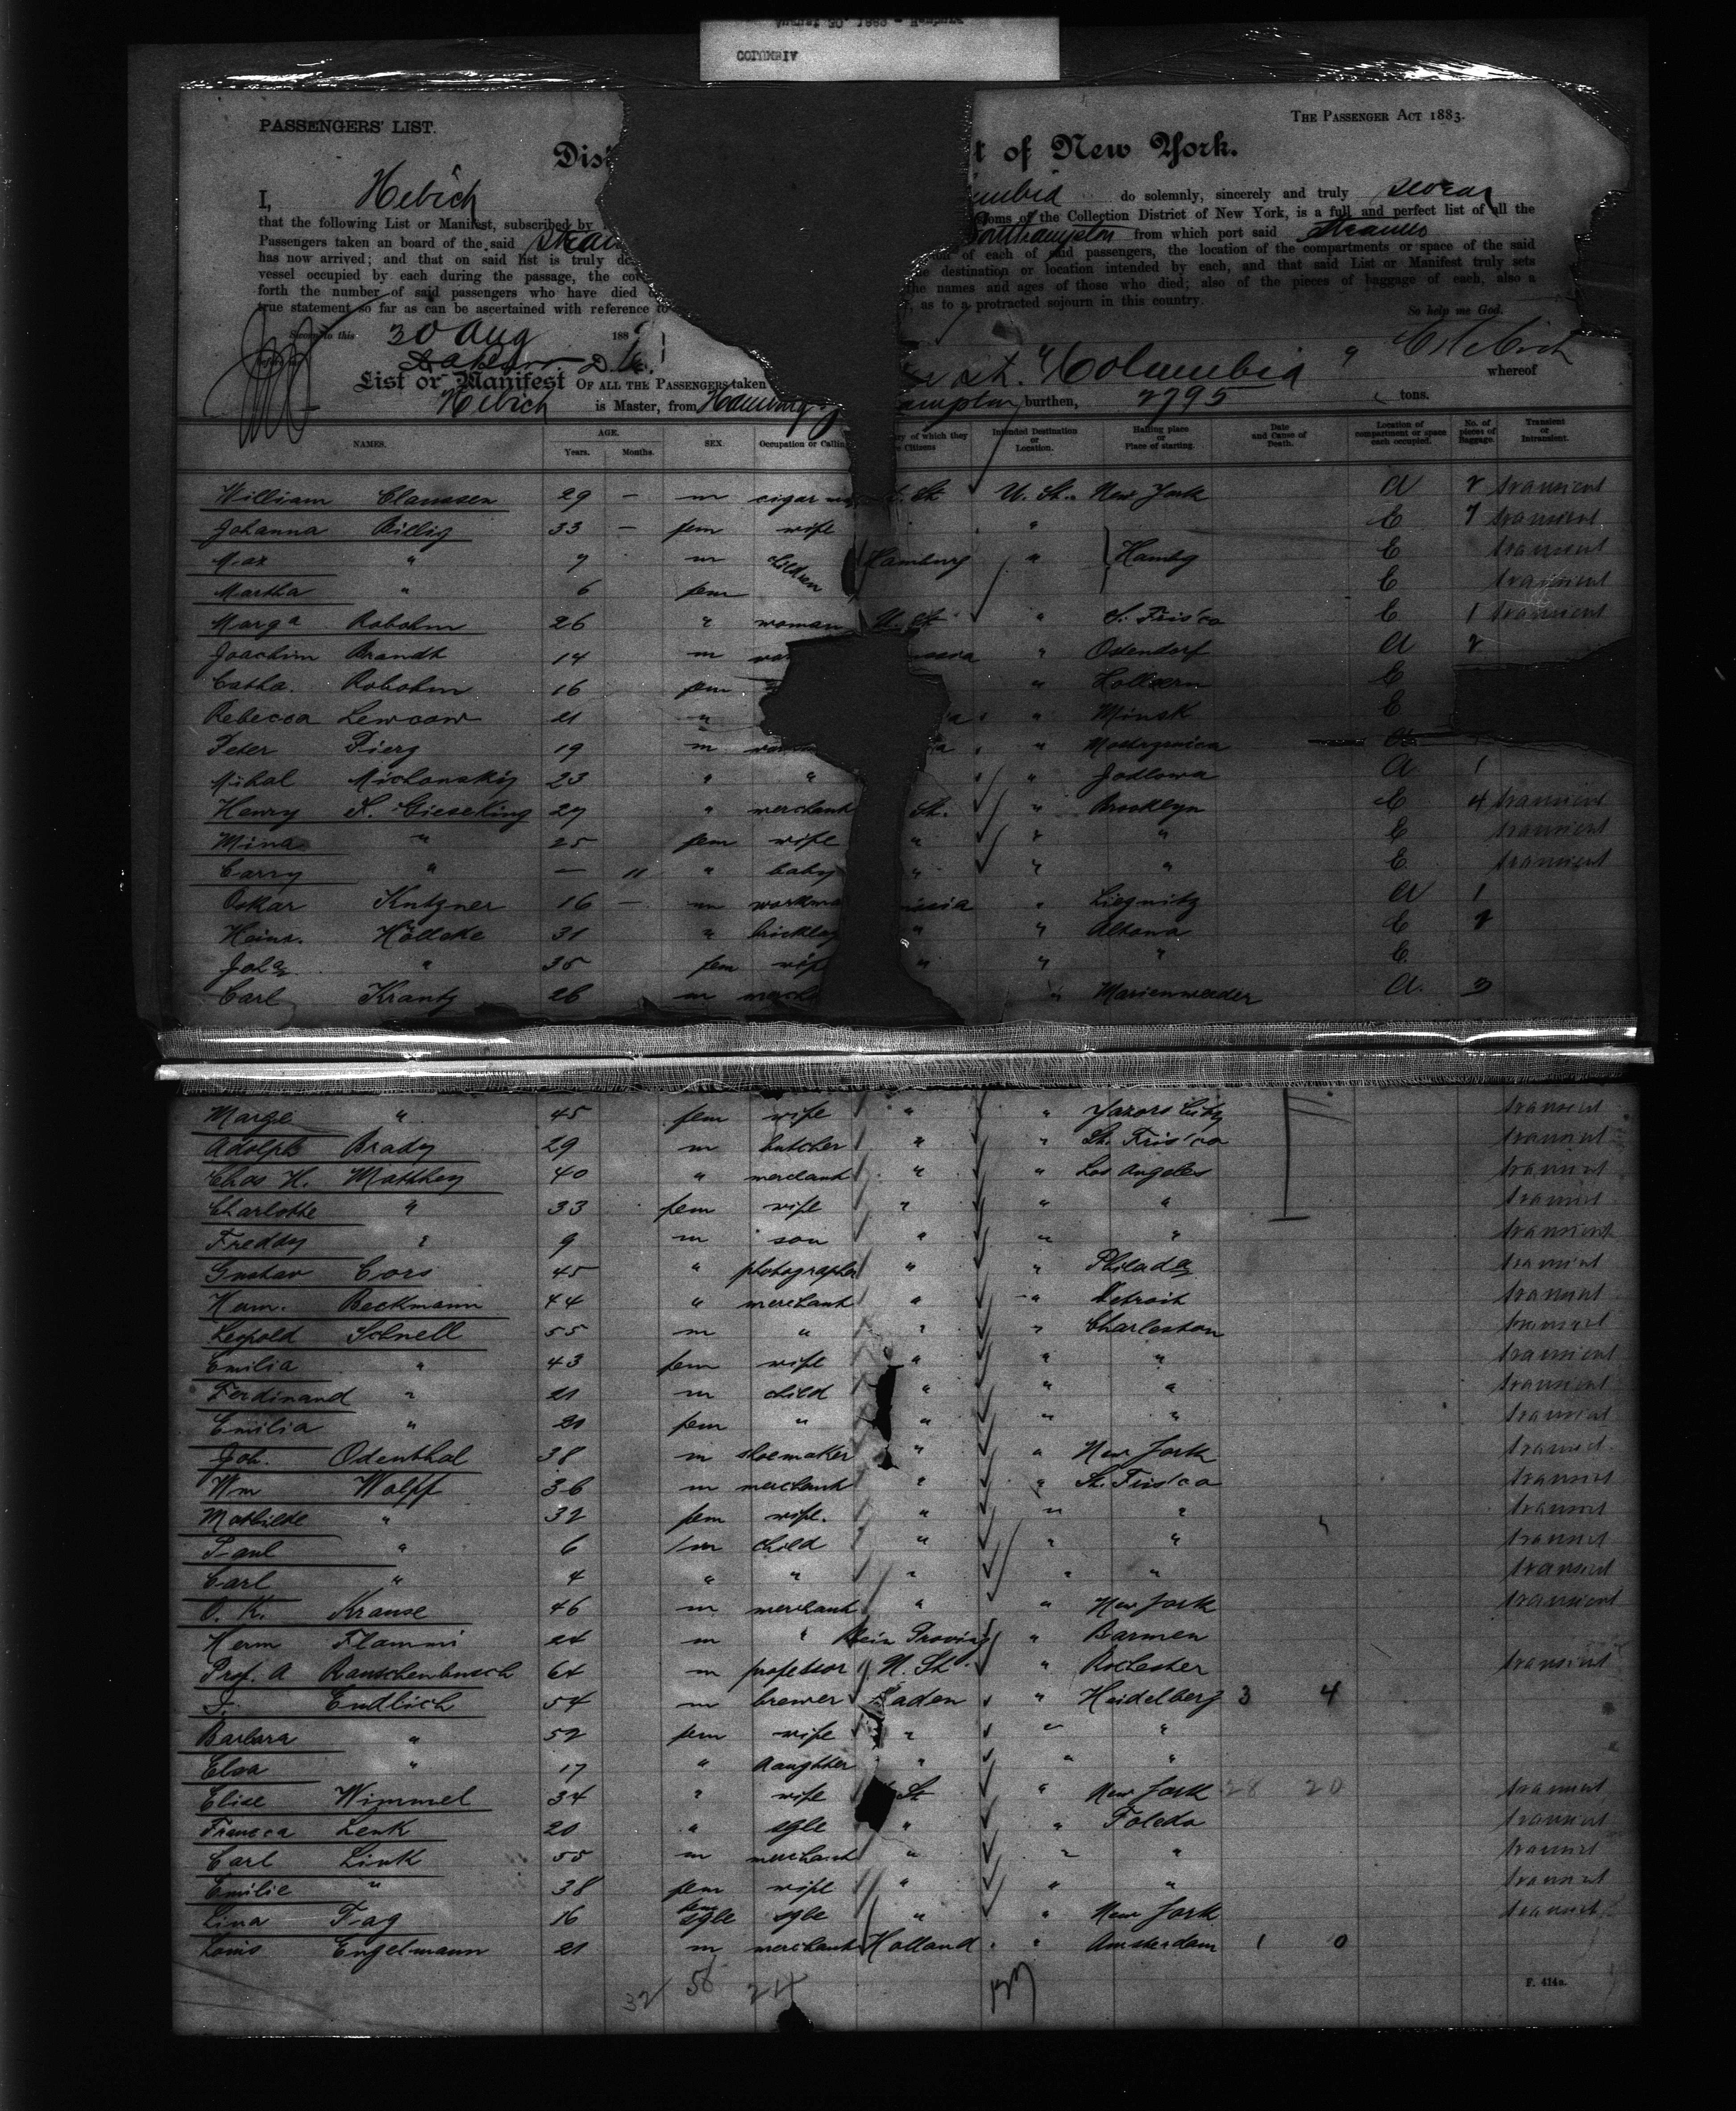 COLUMBIA
PASSENGERS' LIST.
THE PASSENGER ACT 1883.
of New York.
I, Hebich
do solemnly, sincerely and truly swear
that the following List or Manifest, subscribed by
of the Collection District of New York, is a full and perfect list of all the
Passengers taken an board of the said
Southampton from which port said
has now arrived; and that on said list is truly
of each of said passengers, the location of the compartments or space of the said
vessel occupied by each during the passage, the
destination or location intended by each, and that said List or Manifest truly sets
forth the number of said passengers who have died
the names and ages of those who died; also of the pieces of baggage of each, also a
true statement so far as can be ascertained with reference to
, as to a protracted sojourn in this country.
So help me God.
Sworn to this 30 Aug 188
List or Manifest OF ALL THE PASSENGERS taken
"Columbia" whereof
Hebich is Master, from Hamburg
burthen, 2795 tons.
NAMES. AGE. Years. Months. SEX. Occupation or Calling
of which they Citizens Intended Destination or Location. Hailing place or Place of starting. Date and Cause of Death. Location of compartment or space each occupied. No. of pieces of Baggage. Transient or Intransient.
William Claussen 29 – m cigar St. U. St. New York a 2 transient
Johanna Billig 33 – fem wife " E 7 transient
Max " 7 m children Hamburg " Hambg E transient
Martha " 6 fem E transient
Marga Robohm 26 " woman U. St " S. Fris'co E 1 transient
Joachim Brandt 14 m " Ostendorf a 2
Catha. Robohm 16 fem " Hollern E
Rebecca Lewcow 21 " " Minsk E
Peter 19 m "
Michal 23 " " " Jodlowa a 1
Henry F. Gieseking 27 " merchant St. " Brooklyn E 4 transient
Mina " 25 fem wife " " " E transient
Carry " – 11 " baby " " " E transient
Oskar Kutzner 16 – m " Liegnitz a 1
Heinr. Hölleke 31 " " " Altona E 2
Joha " 35 fem " " " E.
Carl Krantz 26 m " Marienwerder a. 3
Marge " 45 fem wife " " transient
Adolph Brady 29 m butcher " " St. Fris'co transient
Chas H. Matthey 40 " merchant " " Los Angeles transient
Charlotte " 33 fem wife " " " transient
Freddy " 9 m son " " " transient
Gustav Cors 45 " photographer " " Philada transient
Herm. Beckmann 44 " merchant " " Detroit transient
Leopold Schnell 55 m " " " Charleston transient
Emilia " 43 fem wife " " " transient
Ferdinand " 21 m child " " " transient
Emilia " 20 fem " " " " transient
Joh. Odenthal 38 m shoemaker " " New York transient
Wm Wolff 36 m merchant " " St. Fris'co transient
Mathilde " 32 fem wife. " " " transient
Paul " 6 m child " " " transient
Carl " 4 " " " " " transient
O. K. Krause 46 m merchant " " New York transient
Herm 24 m " Rein Proving " Barmen
Prof. A Rauschenbusch 64 m professor U. St. " Rochester transient
Endlich 54 m brewer Baden " Heidelberg 3 4
Barbara " 52 fem wife " " "
Elsa " 17 " daughter " " "
Elise Wimmel 34 " wife St " New York 28 20 transient
Lenk 20 " sgle " " Toledo transient
Carl Link 55 m merchant " " " transient
Emilie " 38 fem wife " " " transient
Lina 16 fem sgle sgle " " New York transient
Louis Engelmann 21 m merchant Holland " Amsterdam 1 0
32 56 24
F. 414a.